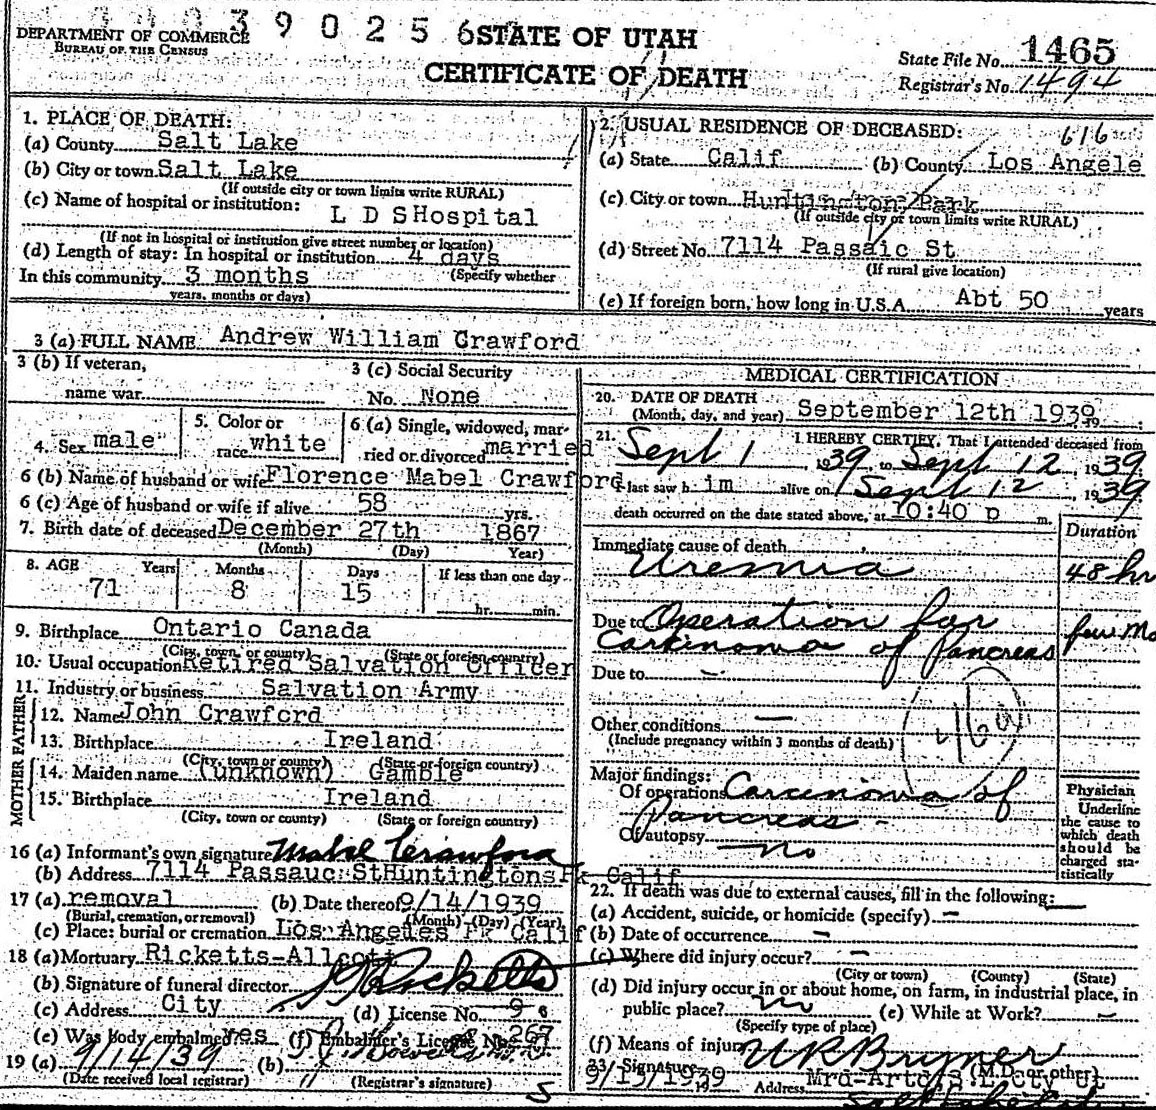 390256
DEPARTMENT OF COMMERCE
BUREAU OF THE CENSUS
STATE OF UTAH
CERTIFICATE OF DEATH
State File No. 1465
Registrar's No. 1494
1. PLACE OF DEATH:
(a) County Salt Lake
(b) City or town Salt Lake
(If outside city or town limits write RURAL)
(c) Name of hospital or institution:
L D S Hospital
(If not in hospital or institution give street number or location)
(d) Length of stay: In hospital or institution 4 days
(Specify whether
In this community 3 months
years, months or days)
2. USUAL RESIDENCE OF DECEASED: 616
(a) State Calif (b) County Los Angele
(c) City or town Huntington Park
(If outside city or town limits write RURAL)
(d) Street No. 7114 Passaic St
(If rural give location)
(e) If foreign born, how long in U.S.A. Abt 50 years
3 (a) FULL NAME Andrew William Crawford
3 (b) If veteran,
name war
3 (c) Social Security
No. None
4. Sex male
5. Color or
race white
6 (a) Single, widowed, mar-
ried or divorced married
6 (b) Name of husband or wife Florence Mabel Crawford
6 (c) Age of husband or wife if alive 58 yrs.
7. Birth date of deceased December 27th 1867
(Month) (Day) Year)
8. AGE Years Months Days If less than one day
71 8 15 hr. min.
9. Birthplace Ontario Canada
(City, town, or county) (State or foreign country)
10. Usual occupation Retired Salvation Officer
11. Industry or business Salvation Army
FATHER
12. Name John Crawford
13. Birthplace Ireland
(City, town or county) (State or foreign country)
MOTHER
14. Maiden name (unknown) Gamble
15. Birthplace Ireland
(City, town or county) (State or foreign country)
16 (a) Informant's own signature Mabel Crawford
(b) Address 7114 Passauc St Huntingtons Pk Calif
17 (a) removal (b) Date thereof 9/14/1939
(Burial, cremation, or removal) (Month) (Day) (Year)
(c) Place: burial or cremation Los Angeles Pk Calif
18 (a) Mortuary Ricketts-Allcott
(b) Signature of funeral director Ricketts
(c) Address City (d) License No. 9
(e) Was body embalmed? yes (f) Embalmer's License No. 267
19 (a) 9/14/39 (b)
(Date received local registrar) (Registrar's signature)
5
MEDICAL CERTIFICATION
20. DATE OF DEATH
(Month, day, and year) September 12th 1939
21. I HEREBY CERTIFY, That I attended deceased from
Sept 1 1939, to Sept 12, 1939
I last saw h im alive on Sept 12, 1939
death occurred on the date stated above, at 10:40 p m.
Duration
Immediate cause of death
Uremia 48 hr
Due to Operation for
Carkinoma of Pancreas few Mo
Due to —
Other conditions —
(Include pregnancy within 3 months of death)
Major findings:
Of operations Carcinoma of
Pancreas -
Of autopsy no
Physician
Underline
the cause to
which death
should be
charged sta-
tistically
22. If death was due to external causes, fill in the following:
(a) Accident, suicide, or homicide (specify) —
(b) Date of occurrence —
(c) Where did injury occur? —
(City or town) (County) (State)
(d) Did injury occur in or about home, on farm, in industrial place, in
public place? no (e) While at Work? —
(Specify type of place)
(f) Means of injury
23. Signature U R Bryner
(M.D. or other)
9/13/1939 Address